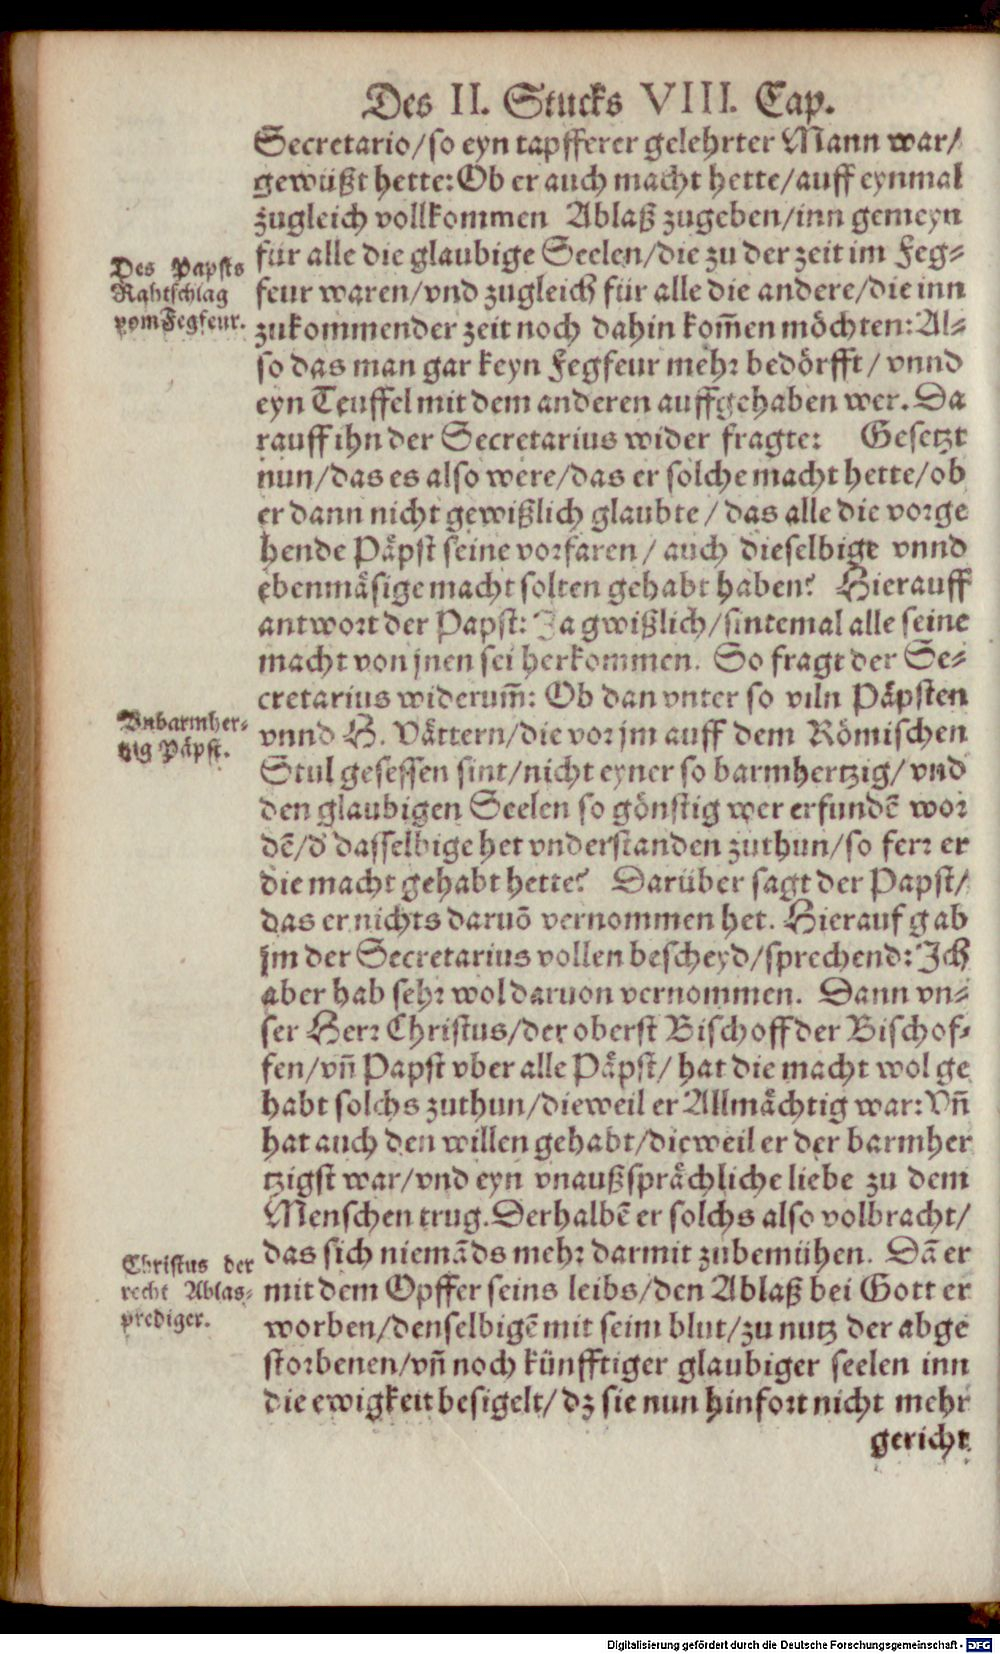 Des II. Stucks VIII. Cap.
Secretario/so eyn tapfferer gelehrter Mann war/
gewüßt hette: Ob er auch macht hette/auff eynmal
zugleich vollkommen Ablaß zugeben/inn gemeyn
für alle die glaubige Seelen/die zu der zeit im Feg⸗
feur waren/vnd zugleich für alle die andere/die inn
zukommender zeit noch dahin kom̃en möchten: Al⸗
so das man gar keyn Fegfeur mehr bedörfft/ vnnd
eyn Teuffel mit dem anderen auffgehaben wer. Da
rauff ihn der Secretarius wider fragte: Gesetzt
nun/das es also were/das er solche macht hette/ob
er dann nicht gewißlich glaubte/das alle die vorge
hende Päpst seine vorfaren/ auch dieselbige vnnd
ebenmäsige macht solten gehabt haben? Hierauff
antwort der Papst: Ja gwißlich/sintemal alle seine
macht von jnen sei herkommen. So fragt der Se⸗
cretarius widerum̃: Ob dan vnter so viln Päpsten
vnnd H. Vättern/die vor jm auff dem Römischen
Stul gesessen sint/nicht eyner so barmhertzig/ vnd
den glaubigen Seelen so gönstig wer erfundẽ wor
dẽ/d' dasselbige het vnderstanden zuthun/so ferr er
die macht gehabt hette? Darüber sagt der Papst/
das er nichts daruõ vernommen het. Hierauf gab
jm der Secretarius vollen bescheyd/sprechend: Ich
aber hab sehr wol daruon vernommen. Dann vn⸗
ser Herr Christus/der oberst Bischoff der Bischof⸗
fen/vñ Papst vber alle Päpst/ hat die macht wol ge
habt solchs zuthun/dieweil er Allmächtig war: Vñ
hat auch den willen gehabt/dieweil er der barmher
tzigst war/vnd eyn vnaußsprächliche liebe zu dem
Menschen trug. Derhalbẽ er solchs also volbracht/
das sich niemãds mehr darmit zubemühen. Dã er
mit dem Opffer seins leibs/den Ablaß bei Gott er
worben/denselbigẽ mit seim blut/zu nutz der abge
storbenen/vñ noch künfftiger glaubiger seelen inn
die ewigkeit besigelt/ dz sie nun hinfort nicht mehr
gericht
Des Papsts
Rahtschlag
vom Fegfeur.
Vnbarmher⸗
tzig Päpst.
Christus der
recht Ablas⸗
prediger.
Digitalisierung gefördert durch die Deutsche Forschungsgemeinschaft - DFG